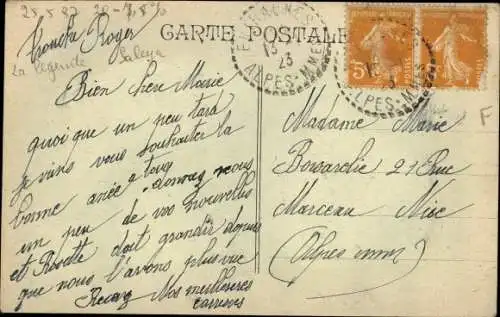 25.5.97 20-7.8%
CARTE POSTALE
Roger
La légende Saleya
Bien chere Marie
quoi que un peu tard
je viens vous souhaiter la
bonne anée a tous donnez nous
un peu de vos nouvelles
et Rosette doit grandir depuis
que nous l'avons plus vue
Recevez Nos meilleures
carresses
13
23
ALPES-MMES
5
POSTES
ALPES-MMES
F
Madame Marie
21 Rue
Marceau Nice
(Alpes mm)